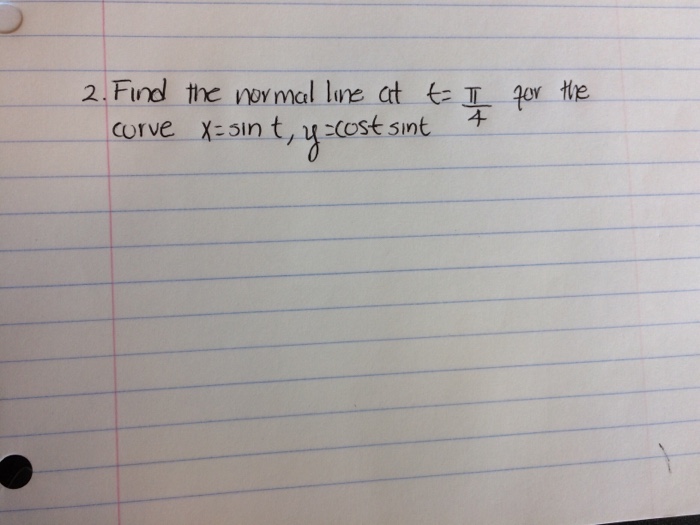 2. Find the normal line at t= π/4 for the
curve x=sin t, y=cost sint